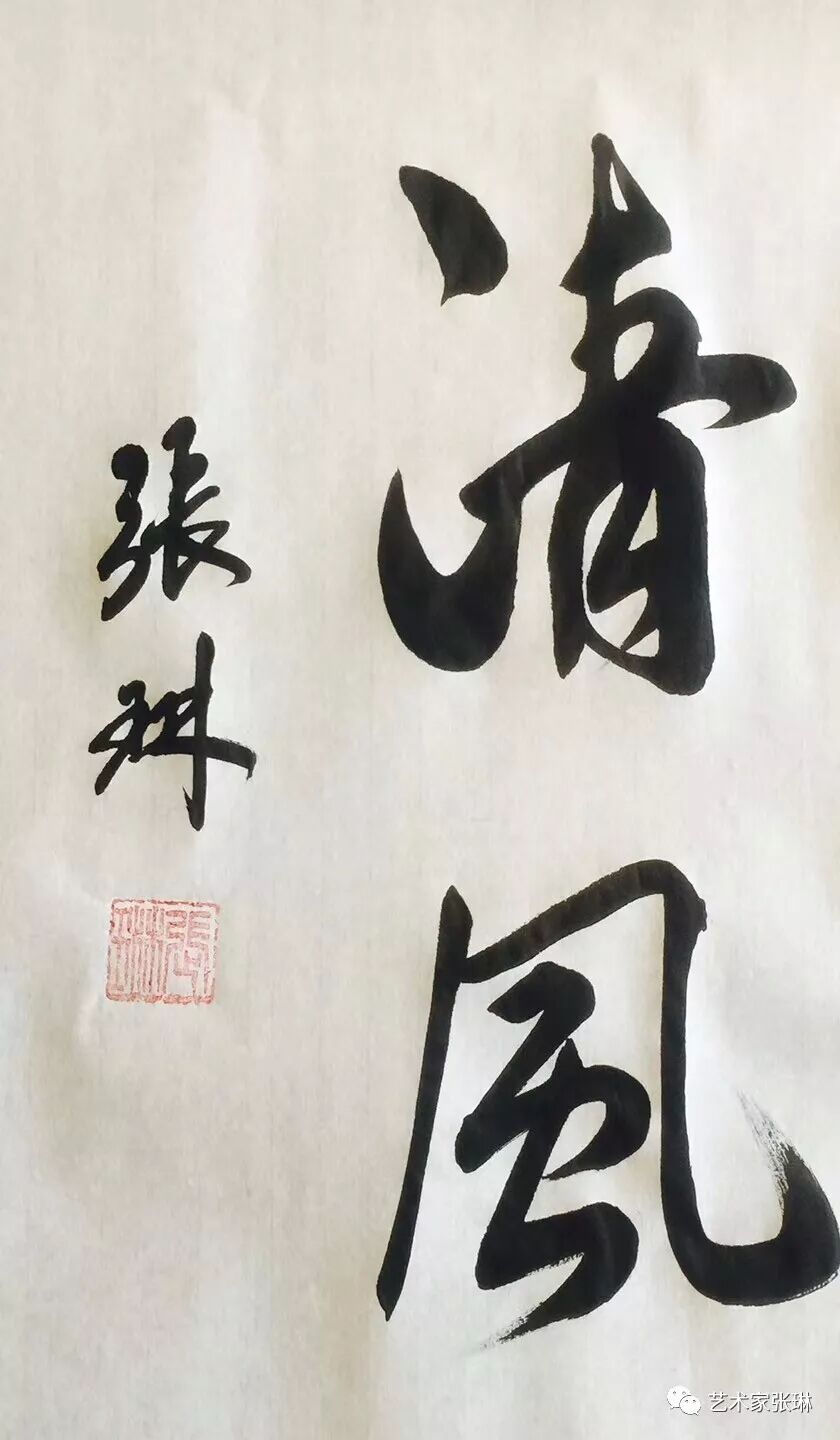 清風
張琳
張琳
艺术家张琳